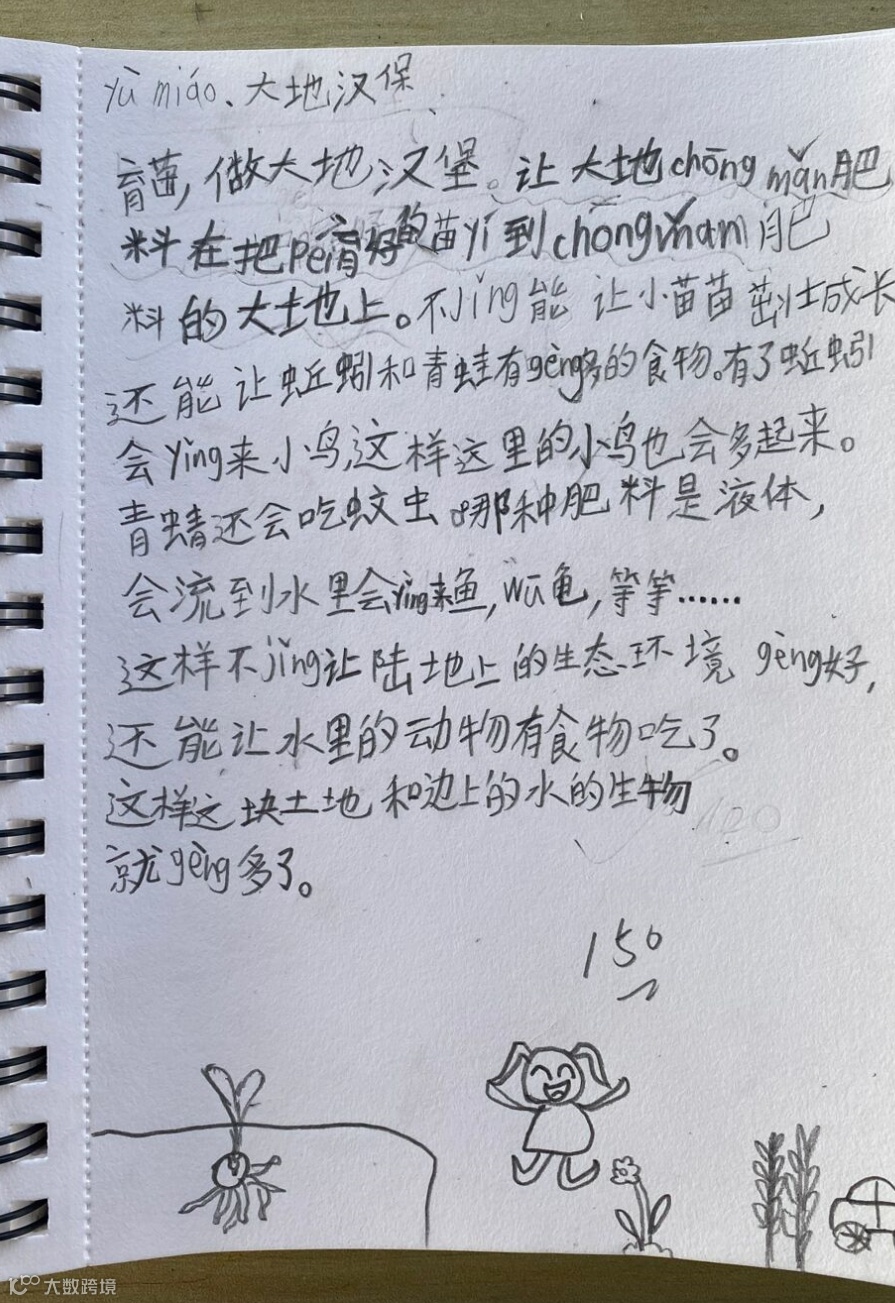 yù miáo、大地汉保
育苗,做大地汉堡。让大地chōng mǎn肥
料在把péi育好的苗yí到chōngmǎm肥
料的大土地上。不jǐng能让小苗苗茁壮成长
还能让蚯蚓和青蛙有gèng多的食物。有了蚯蚓
会yǐng来小鸟,这样这里的小鸟也会多起来。
青蜻还会吃蚊虫。那种肥料是液体,
会流到水里会yǐng来鱼,wū龟,等等……
这样不jǐng让陆地上的生态环境gèng好,
还能让水里的动物有食物吃了。
这样这块土地和边上的水的生物
就gèng多了。
100
150
大数跨境